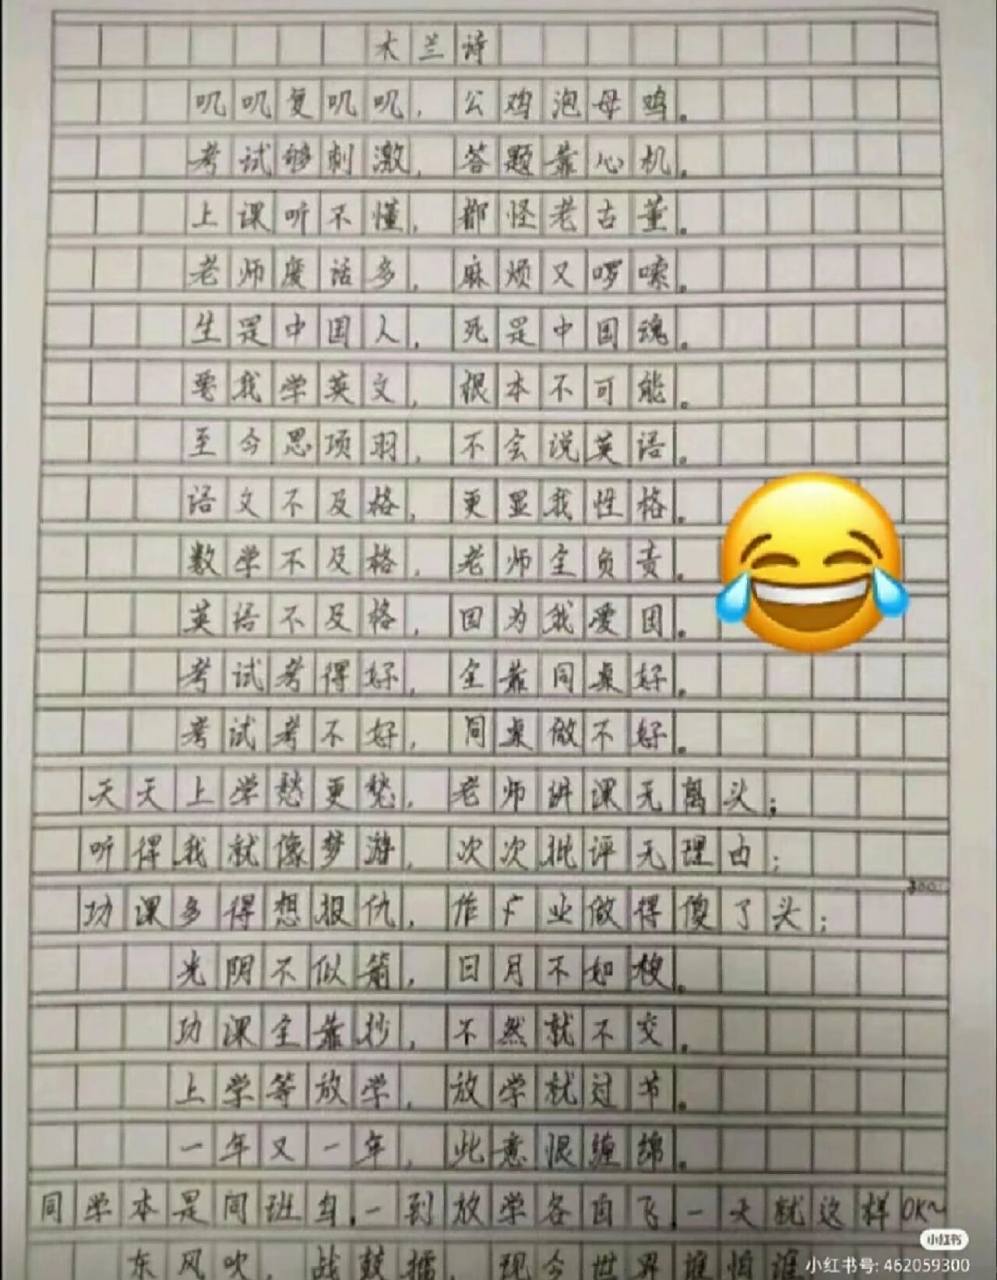 木兰诗
叽叽复叽叽，公鸡泡母鸡。
考试够刺激，答题靠心机。
上课听不懂，都怪老古董。
老师废话多，麻烦又啰嗦。
生是中国人，死是中国魂。
要我学英文，根本不可能。
至今思项羽，不会说英语。
语文不及格，更显我性格。
数学不及格，老师全负责。
英语不及格，因为我爱国。
考试考得好，全靠同桌好。
考试考不好，同桌做不好。
天天上学愁更愁，老师讲课无离头；
听得我就像梦游，次次批评无理由；
800
功课多得想报仇，作业做得傻了头；
光阴不似箭，日月不如梭。
功课全靠抄，不然就不交。
上学等放学，放学就过节。
一年又一年，此意恨缠绵。
同学本是同班鸟，一到放学各自飞，一天就这样OK~
东风吹，战鼓擂，现今世界谁怕谁
小红书
小红书号: 462059300